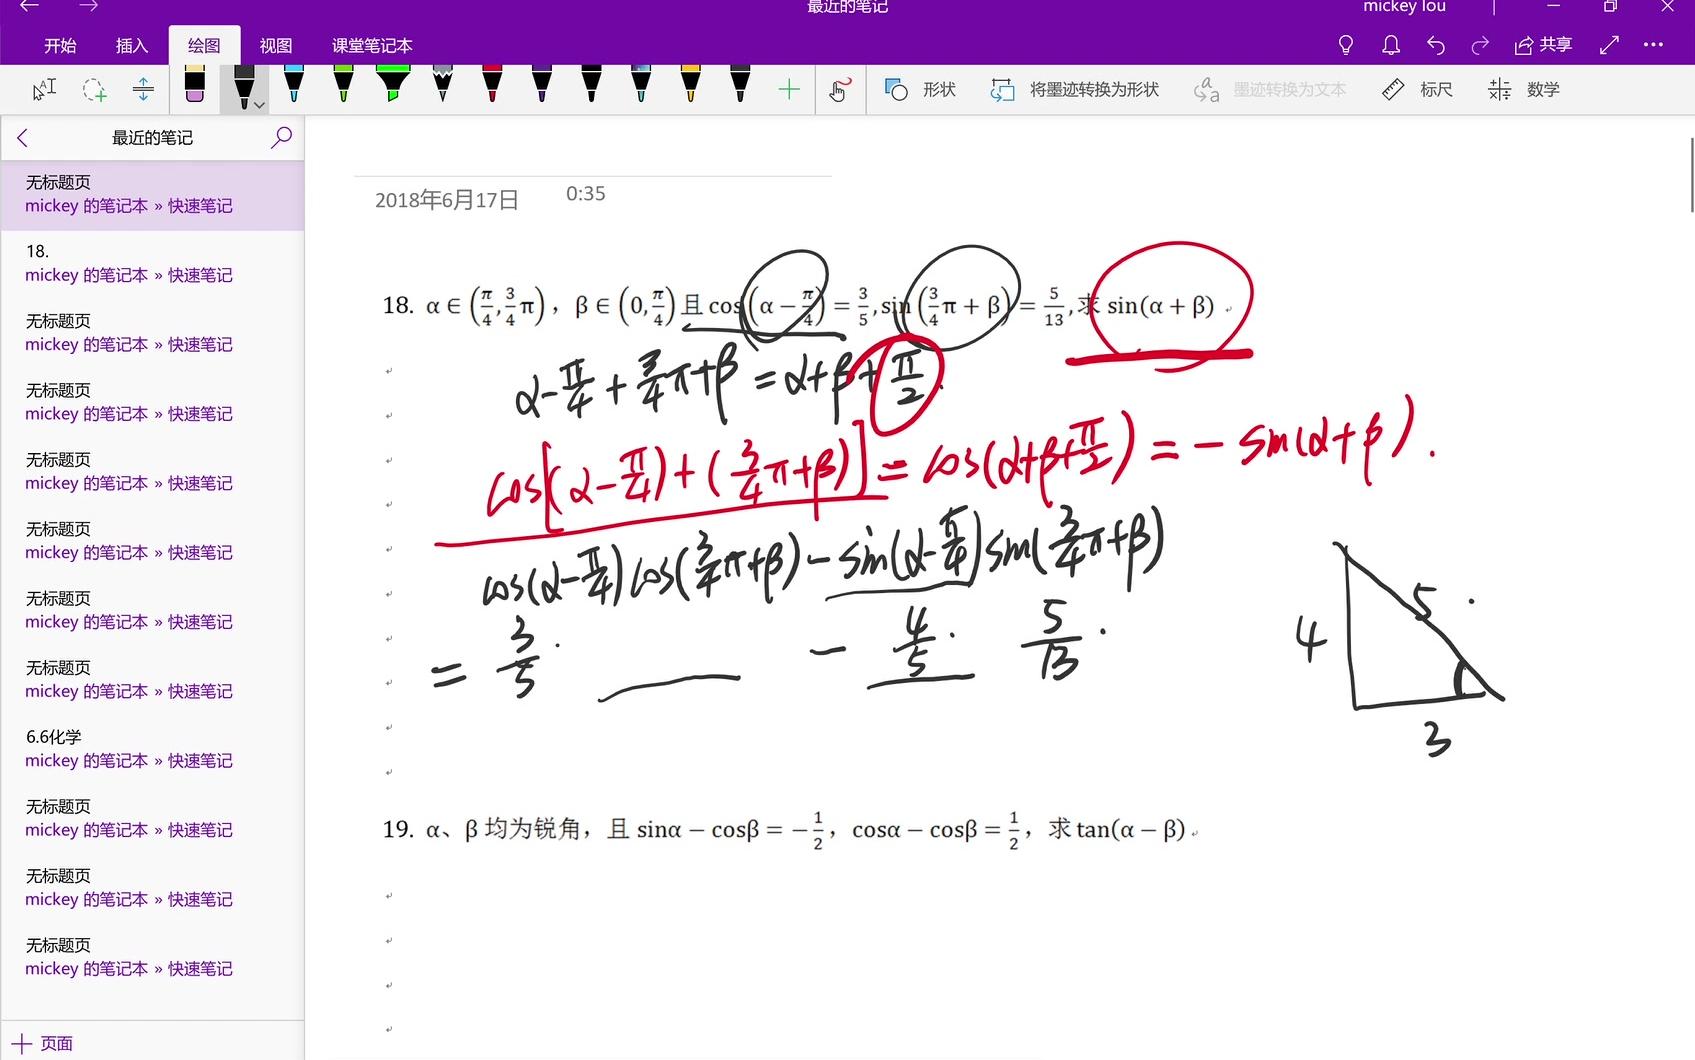 最近的笔记
mickey lou
开始 插入 绘图 视图 课堂笔记本
共享
形状 将墨迹转换为形状 墨迹转换为文本 标尺 数学
最近的笔记
无标题页
mickey 的笔记本 » 快速笔记
18.
mickey 的笔记本 » 快速笔记
无标题页
mickey 的笔记本 » 快速笔记
无标题页
mickey 的笔记本 » 快速笔记
无标题页
mickey 的笔记本 » 快速笔记
无标题页
mickey 的笔记本 » 快速笔记
无标题页
mickey 的笔记本 » 快速笔记
无标题页
mickey 的笔记本 » 快速笔记
6.6化学
mickey 的笔记本 » 快速笔记
无标题页
mickey 的笔记本 » 快速笔记
无标题页
mickey 的笔记本 » 快速笔记
无标题页
mickey 的笔记本 » 快速笔记
页面
2018年6月17日 0:35
18. α ∈ (π/4, 3/4 π)，β ∈ (0, π/4) 且 cos(α − π/4) = 3/5, sin(3/4 π + β) = 5/13, 求 sin(α + β)
α − π/4 + 3/4 π + β = α + β + π/2.
cos[(α − π/4) + (3/4 π + β)] = cos(α + β + π/2) = − sin(α + β).
cos(α − π/4) cos(3/4 π + β) − sin(α − π/4) sin(3/4 π + β)
= 3/5 · − 4/5 · 5/13 ·
4 5
3
19. α、β 均为锐角，且 sinα − cosβ = −1/2，cosα − cosβ = 1/2，求 tan(α − β)